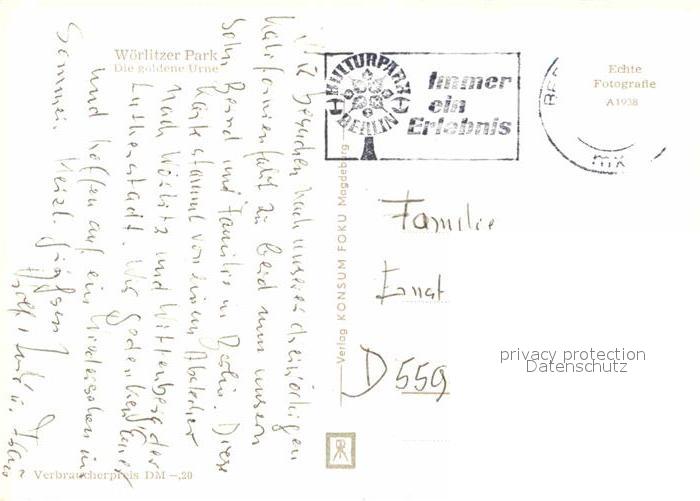 Wörlitzer Park
Die goldene Urne
Wir besuchen nach unserer dreiwöchigen
Kalifornienfahrt zu beid nun unseren
Sohn Bernd und Familie in Berlin. Diese
Karte stammt von einem Abstecher
nach Wörlitz und Wittenberg der
Lutherstadt. Wir gedenken Eurer
und hoffen auf ein Wiedersehen im
Sommer. Herzl. Grüße
Verbraucherpreis DM –,20
Verlag KONSUM FOKU Magdeburg
KULTURPARK
BERLIN
Immer
ein
Erlebnis
Echte
Fotografie
A1938
Familie
Ernst
D 559
privacy protection
Datenschutz